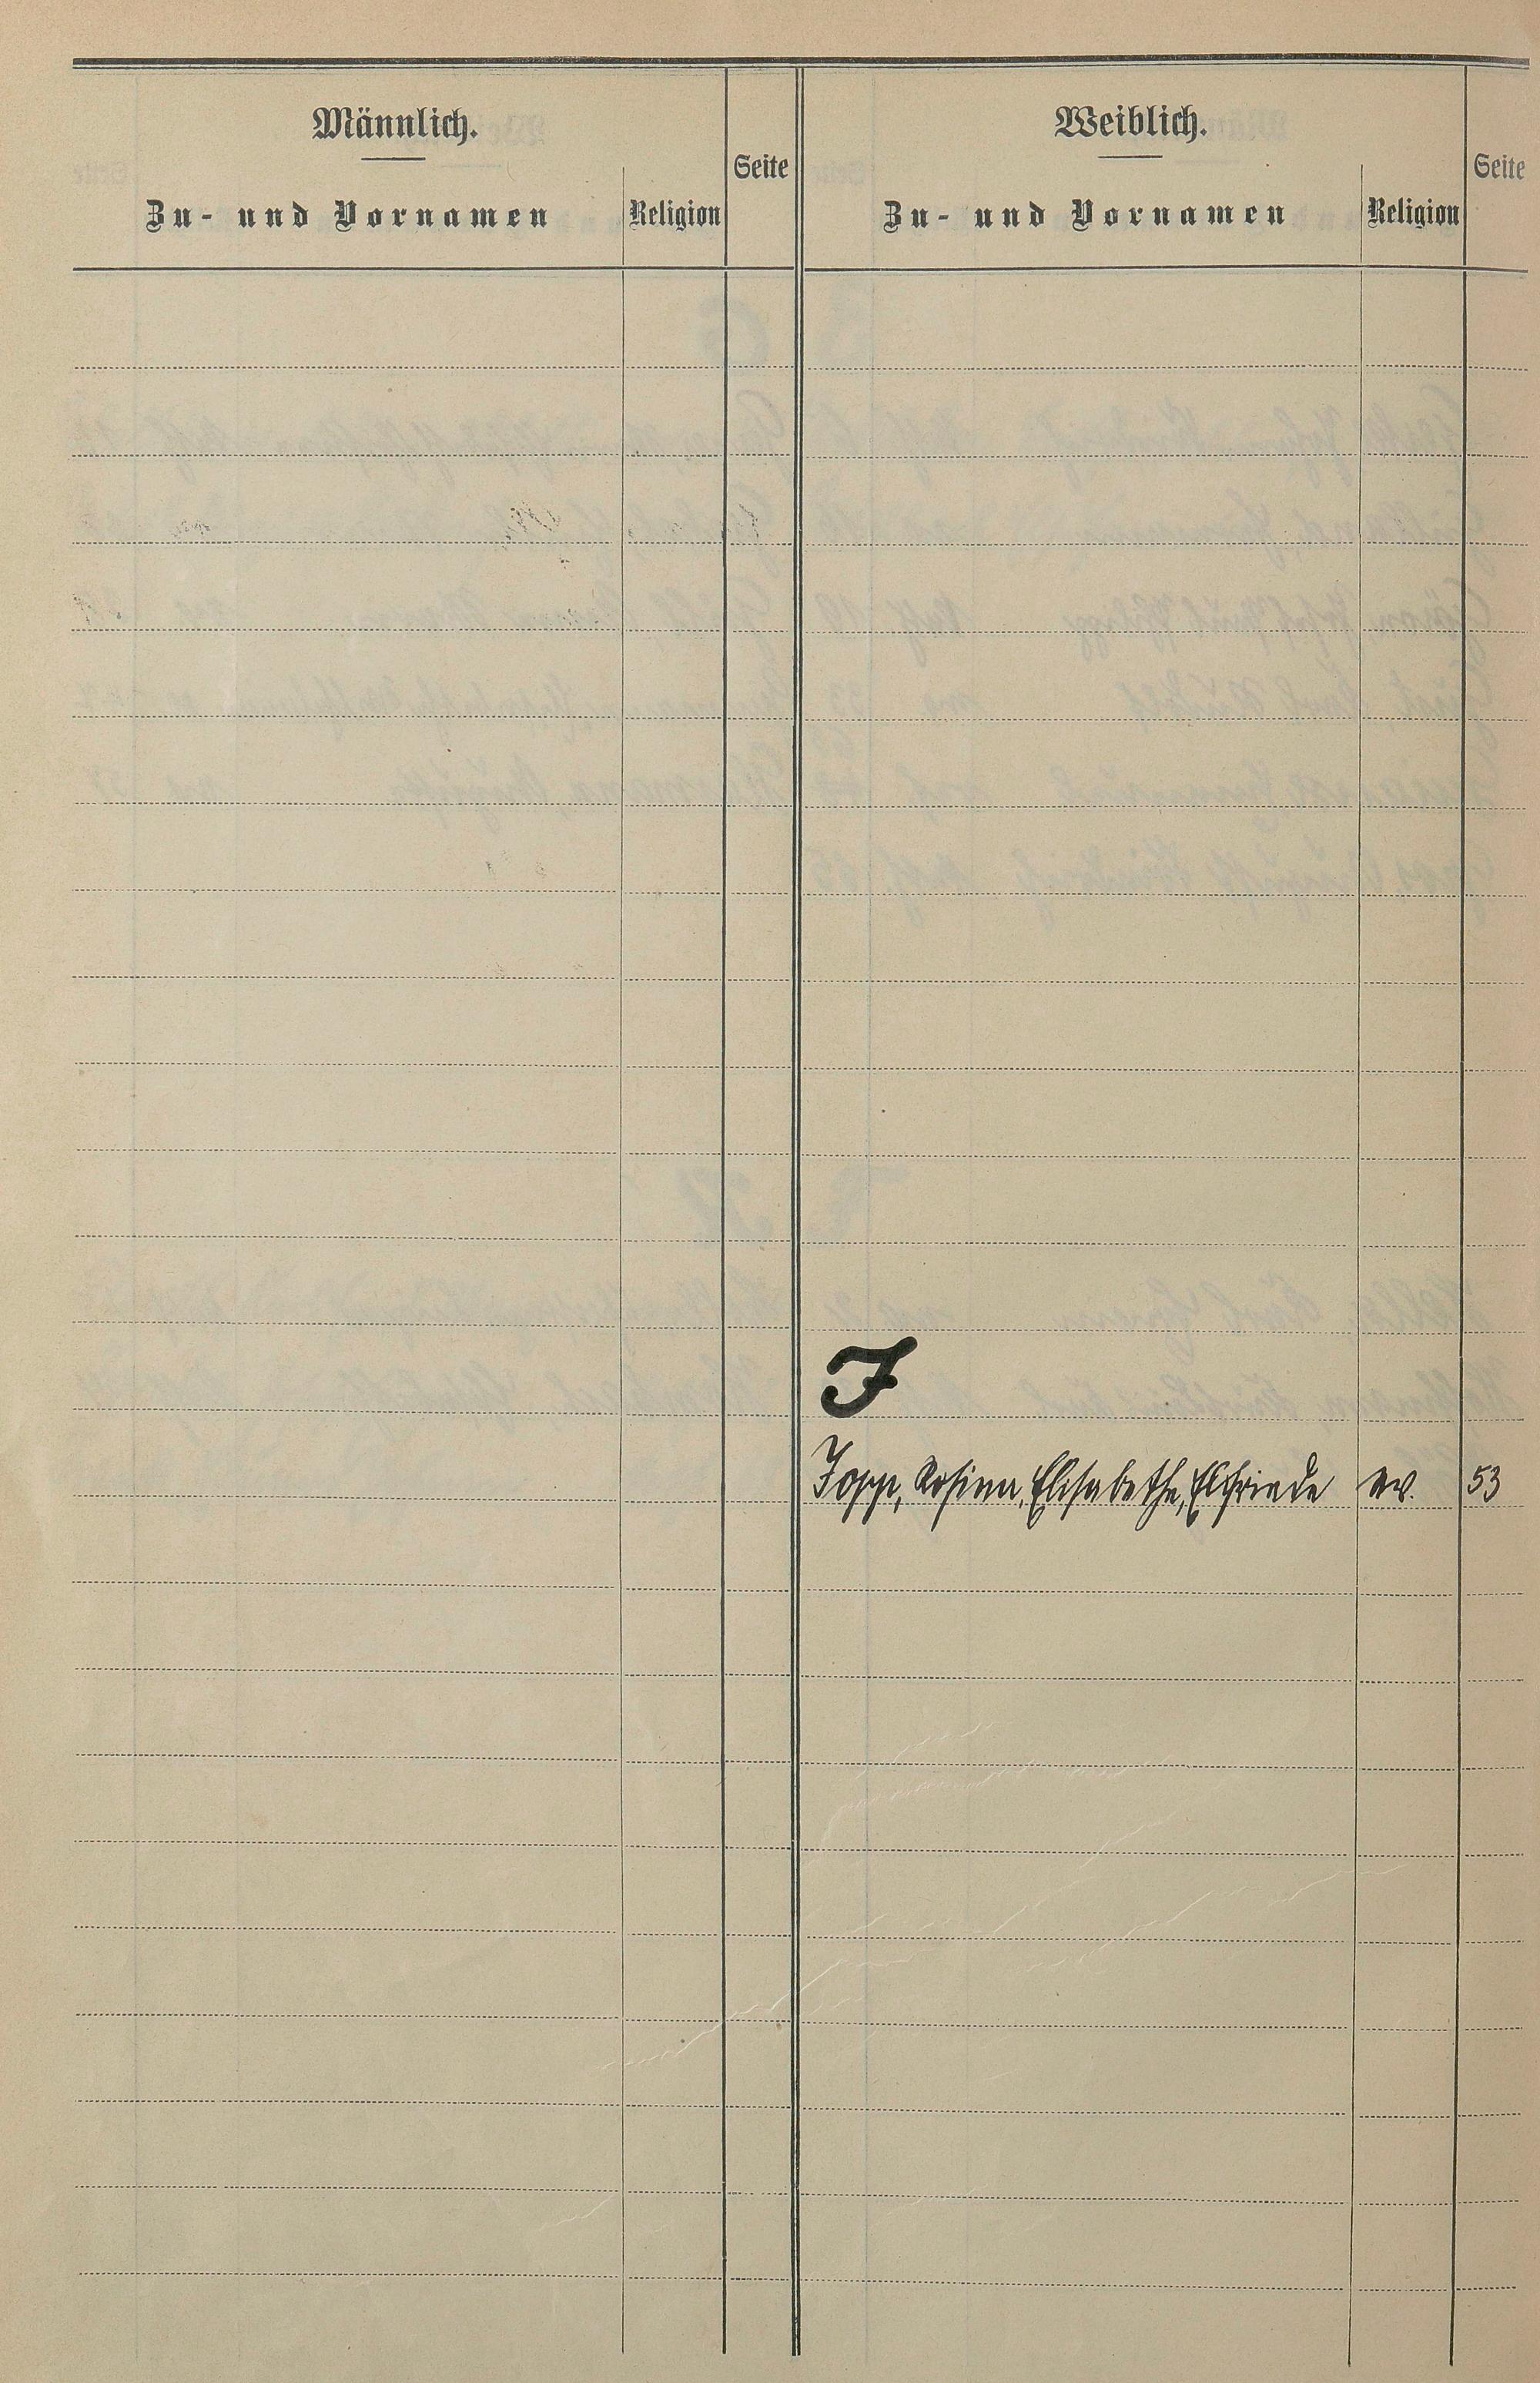 Männlich.
Zu- und Vornamen Religion Seite
Weiblich.
Zu- und Vornamen Religion Seite
J
Jopp, Rosina, Elisabetha, Elfriede ev. 53